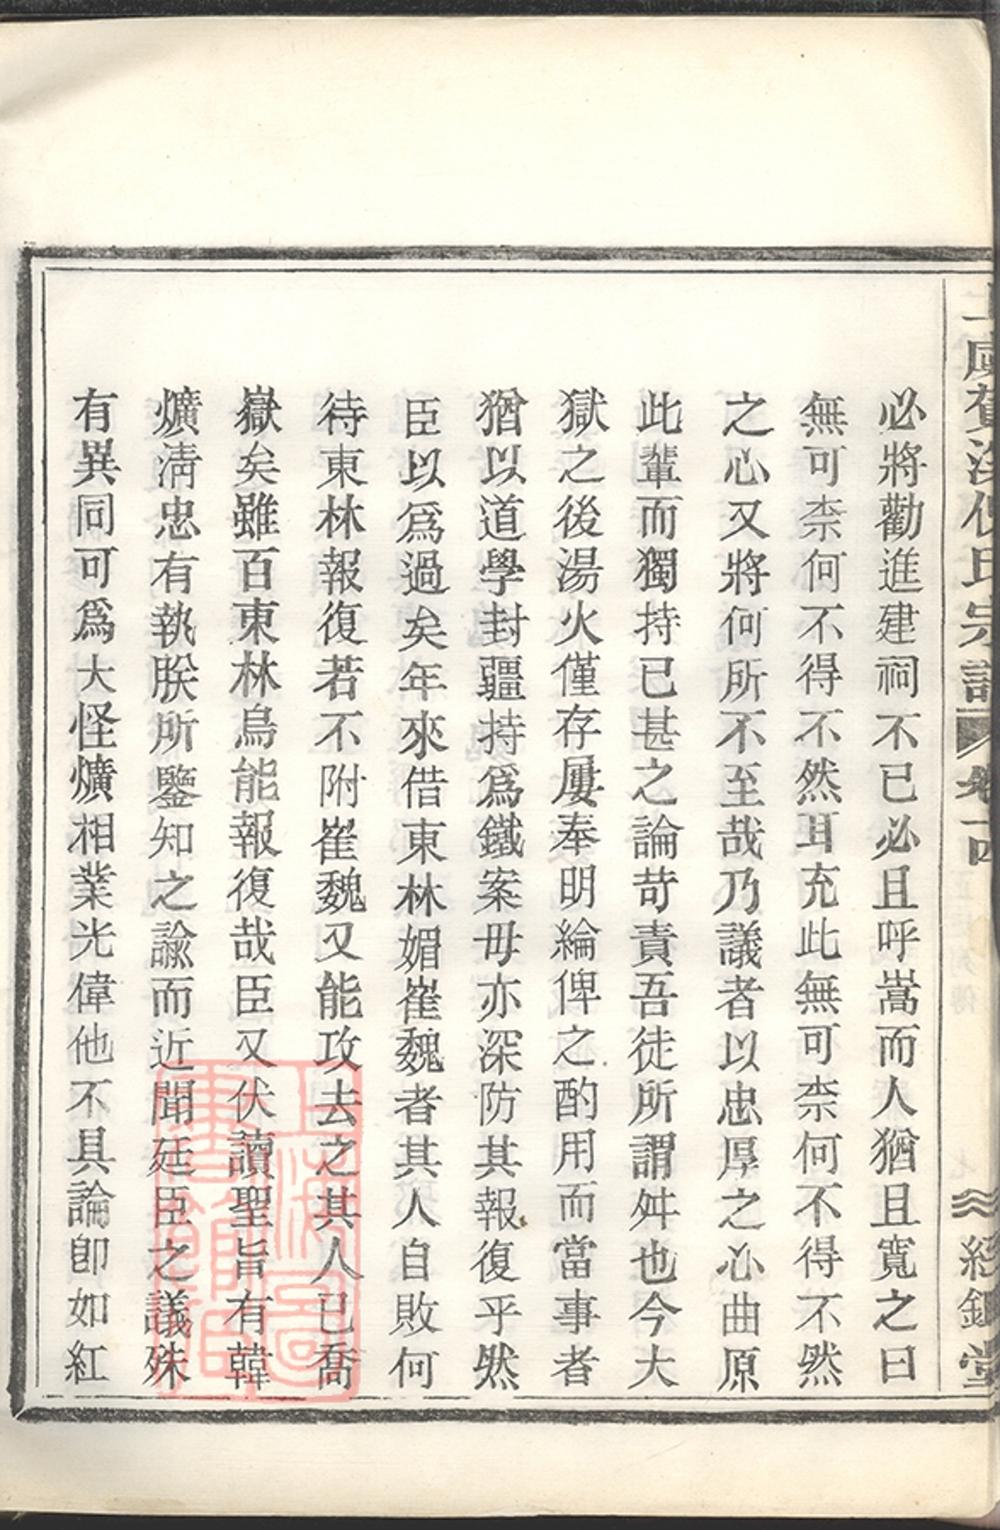 上虞賀溪倪氏宗譜 卷十四 經鋤堂
必將勸進建祠不已必且呼嵩而人猶且寬之曰
無可柰何不得不然耳充此無可柰何不得不然
之心又將何所不至哉乃議者以忠厚之心曲原
此輩而獨持已甚之論苛責吾徒所謂舛也今大
獄之後湯火僅存屢奉明綸俾之酌用而當事者
猶以道學封疆持爲鐵案毋亦深防其報復乎然
臣以爲過矣年來借東林媚崔魏者其人自敗何
待東林報復若不附崔魏又能攻去之其人已喬
嶽矣雖百東林烏能報復哉臣又伏讀聖旨有韓
爌淸忠有執朕所鑒知之諭而近聞廷臣之議殊
有異同可爲大怪爌相業光偉他不具論卽如紅
上海圖書館藏